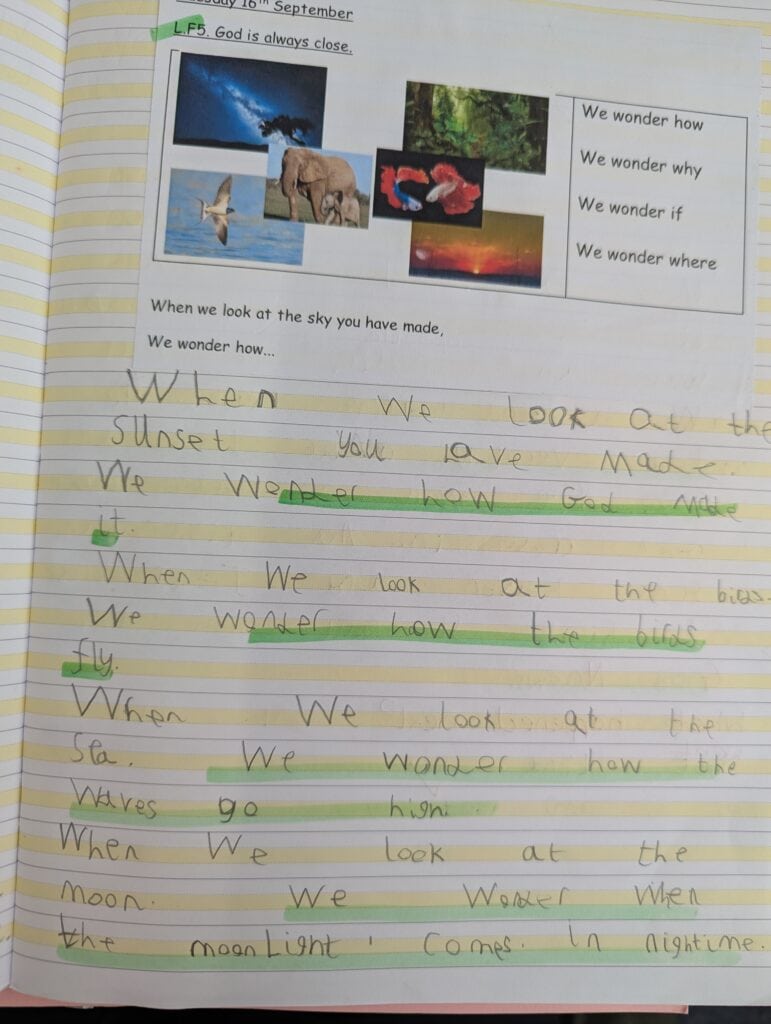 16th September
L.F5. God is always close.
We wonder how
We wonder why
We wonder if
We wonder where
When we look at the sky you have made,
We wonder how...
When We look at the
sunset you have made.
We Wonder how God Made
it.
When We look at the birds.
We wonder how the birds
fly.
When We look at the
Sea. We wonder how the
Waves go high.
When We look at the
moon. We Wonder When
the moonLight comes. in nightime.